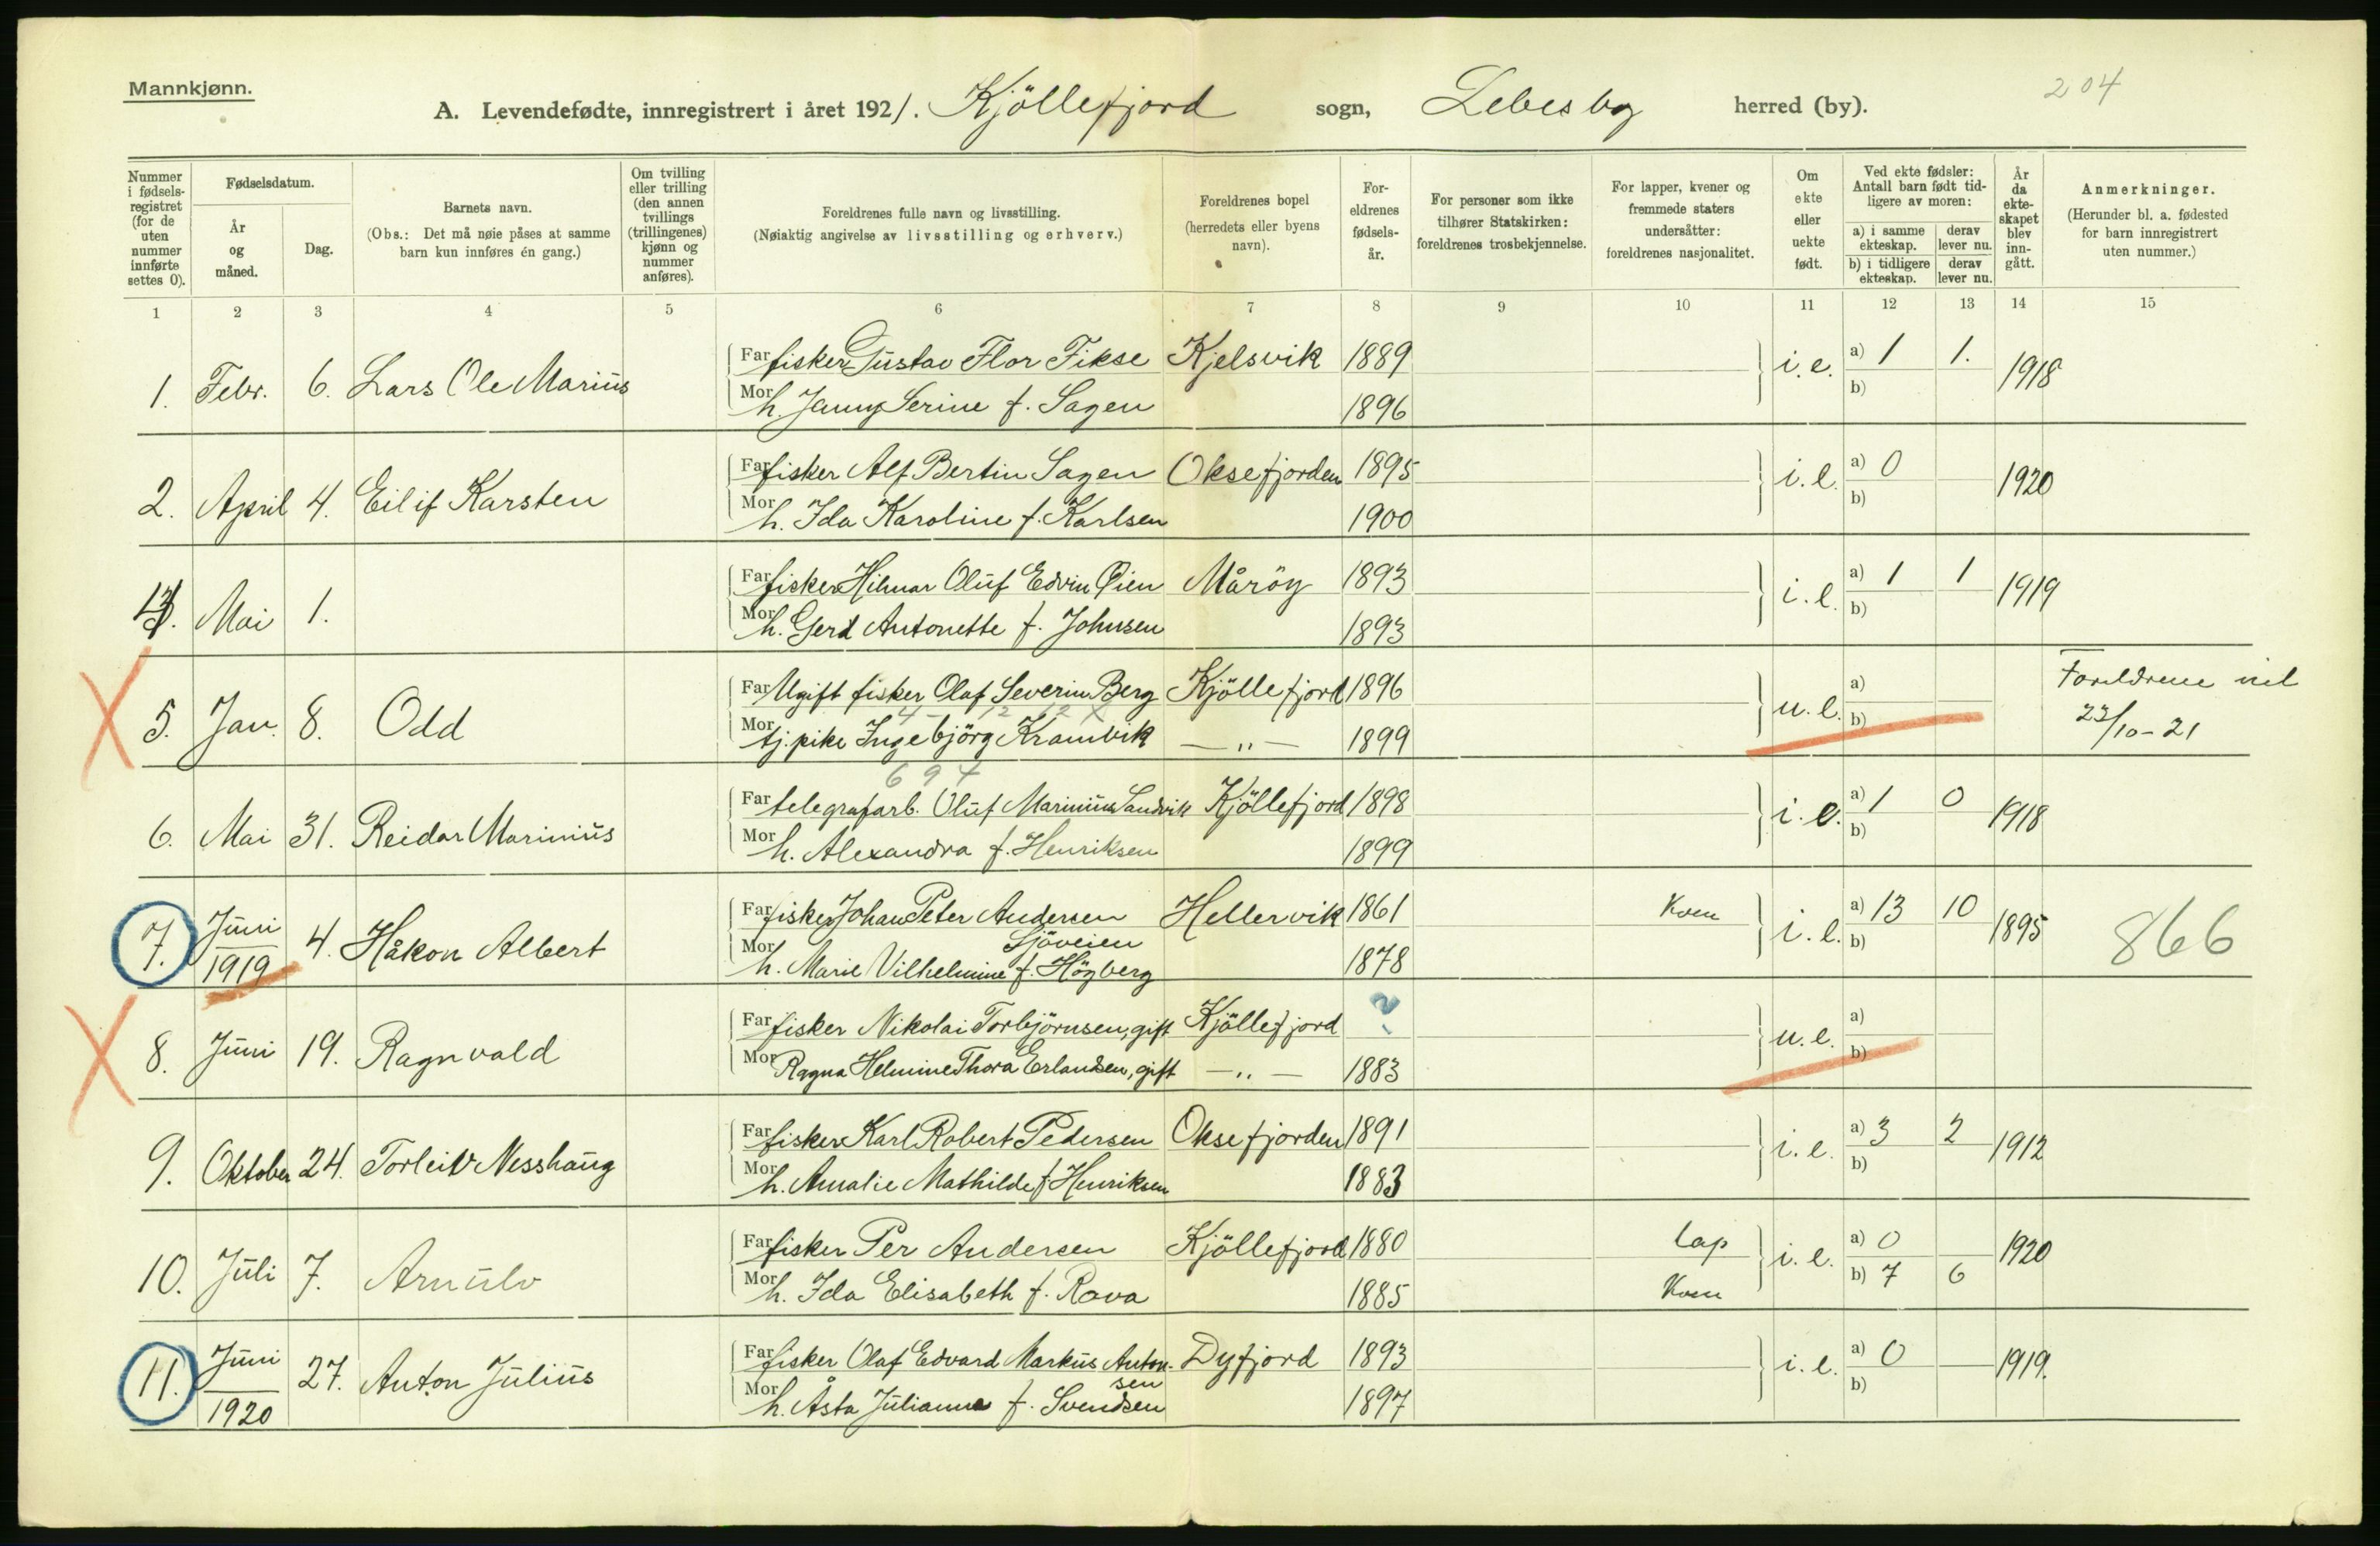 Mannkjønn.
204
A. Levendefødte, innregistrert i året 1921. Kjöllefjord sogn, Lebesby herred (by).
Nummer i fødsels-registret (for de uten nummer innførte settes 0).
Fødselsdatum.
År og måned.
Dag.
Barnets navn.
(Obs.: Det må nøie påses at samme barn kun innføres én gang.)
Om tvilling eller trilling (den annen tvillings (trillingenes) kjønn og nummer anføres).
Foreldrenes fulle navn og livsstilling.
(Nøiaktig angivelse av livsstilling og erhverv.)
Foreldrenes bopel (herredets eller byens navn).
For-eldrenes fødsels-år.
For personer som ikke tilhører Statskirken: foreldrenes trosbekjennelse.
For lapper, kvener og fremmede staters undersåtter: foreldrenes nasjonalitet.
Om ekte eller uekte født.
Ved ekte fødsler: Antall barn født tid-ligere av moren:
a) i samme ekteskap. derav lever nu.
b) i tidligere ekteskap. derav lever nu.
År da ekte-skapet blev inn-gått.
Anmerkninger.
(Herunder bl. a. fødested for barn innregistrert uten nummer.)
1 2 3 4 5 6 7 8 9 10 11 12 13 14 15
Far fisker Gustav Flor Fikse Kjelsvik 1889 a) 1 1.
1. Febr. 6. Lars Ole Marius i. e. 1918
Mor h. Janny Serine f. Sagen 1896 b)
Far fisker Alf Bertin Sagen Oksefjorden 1895 a) 0
2. April 4. Eilif Karsten i. e. 1920
Mor h. Ida Karoline f. Karlsen 1900 b)
Far fisker Hilmar Oluf Edvin Øien Måröy 1893 a) 1 1
Mai 1. i. e. 1919
Mor h. Gerd Antonette f. Johnsen 1893 b)
Far Ugift fisker Olaf Severin Berg Kjöllefjord 1896 a) Foreldrene viel
5. Jan. 8. Odd u. e. 23/10-21
Mor tj. pike Ingebjörg Kramvik —"— 1899 b)
697
Far telegrafarb. Oluf Marinius Sandvik Kjöllefjord 1898 a) 1 0
6. Mai 31. Reidar Marinius i. e. 1918
Mor h. Alexandra f. Henriksen 1899 b)
Far fisker Johan Peter Andersen Hellervik 1861 Kven a) 13 10
7. Juni 1919 4. Håkon Albert Sjöveien i. e. 1895 866
Mor h. Marie Vilhelmine f. Högberg 1878 b)
Far fisker Nikolai Torbjörnsen, gift Kjöllefjord ? a)
8. Juni 19. Ragnvald u. e.
Mor Ragna Helmine Thora Erlandsen, gift —"— 1883 b)
Far fisker Karl Robert Pedersen Oksefjorden 1891 a) 3 2
9. Oktober 24. Torleiv Nesshaug i. e. 1912
Mor h. Amalie Mathilde f. Henriksen 1883 b)
Far fisker Per Andersen Kjöllefjord 1880 Lap a) 0
10. Juli 7. Arnulv i. e. 1920
Mor h. Ida Elisabeth f. Rava 1885 Kven b) 7 6
Far fisker Olaf Edvard Markus Anton- Dyfjord 1893 a) 0
11. Juni 1920 27. Anton Julius sen i. e. 1919.
Mor h. Åsta Julianne f. Svendsen 1897 b)